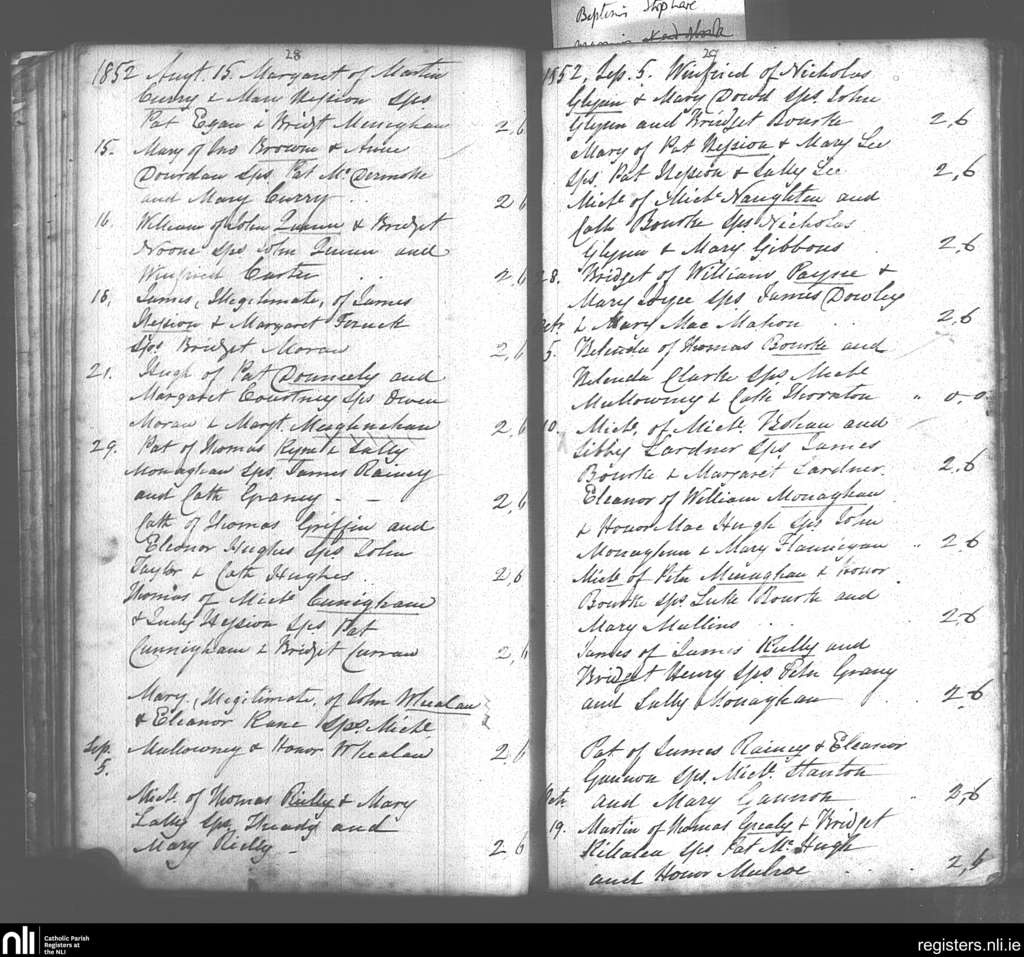 Baptisms
28
1852 Augt. 15. Margaret of Martin
Curry & Mary Hession Sps
Pat Egan & Bridgt Meneghan 2,6
15. Mary of Jno Browne & Anne
Dourdan Sps. Pat Mc Dermotte
and Mary Curry 2 6
16. William of John Quinn & Bridget
Noone Sps John Quinn and
Winifried Carter 2,6
18. James, Illegitimate, of James
Hession & Margaret
Sps. Bridget Moran 2,6
21. Hugh of Pat Donneely and
Margaret Courtney Sps Owen
Moran & Margt. 2,6
29. Pat of Thomas & Sally
Monaghan Sps. James Rainey
and Cath Graney - - 2,6
Cath of Thomas Griffin and
Eleonor Hughes Sps John
Taylor & Cath Hughes. 2,6
Thomas of Michl. Cunigham
& Hession Sps Pat
Cunnigham & Bridget Curran 2,6
Mary, Illegitimate, of John Whealan
& Eleanor Kane Sps. Michl
Sep. Mullowney & Honor Whealan 2 6
5.
Michl. of Thomas Rielly & Mary
Lally Sps. Thady and
Mary Rielly - 2 6
29
1852, Sep. 5. Winfried of Nicholas
Glynn & Mary Dowd Sps. John
Glynn and Bridget Bourke 2,6
Mary of Pat Hession & Mary Lee
Sps. Pat Hession & Sally Lee 2,6
Michl of Michl. Naughten and
Cath Bourke Sps Nicholas
Glynn & Mary Gibbons 2,6
28. Bridget of William Paynee &
Mary Joyce Sps. James Dowley
Octr. & Mary Mac Mahon 2,6
5. Belenda of Thomas Bourke and
Belenda Clarke Sps Michl
Mullowney & Cath Thornton " 0,0
10. Michl. of Michl. and
Sibby Lardner Sps James
Bourke & Margaret Lardner. 2,6
Eleanor of William Monaghan
& Honor Mac Hugh Sps John
Monaghan & Mary Flannigan 2,6
Michl of Peter Minaghan & Honor
Bourke Sps. Luke Bourke and
Mary Mullins 2,6
James of James Rielly and
Bridget Henry Sps Peter Grany
and Sally Monaghan 2,6
Pat of James Rainey & Eleanor
Gannon Sps. Michl. Stanton
Octr. and Mary Gannon 2,6
19. Martin of Thomas Grealy & Bridget
Killalea Sps Pat Mc Hugh
and Honor Mulroe 2,6
nli
Catholic Parish
Registers at
the NLI
registers.nli.ie